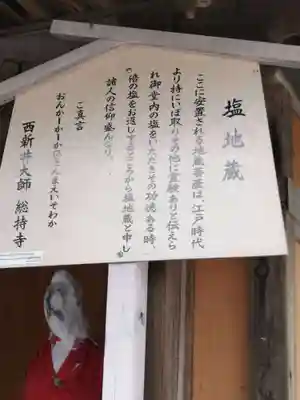 塩地蔵
ここに安置される地蔵菩薩は、江戸時代
より特にいぼ取りその他に霊験ありと伝えら
れ御堂内の塩をいただきその功徳ある時、
倍の塩をお返しするところから塩地蔵と申し
諸人の信仰盛んなり。
ご真言
おんかーかーかびさんまえいそわか
西新井大師 總持寺